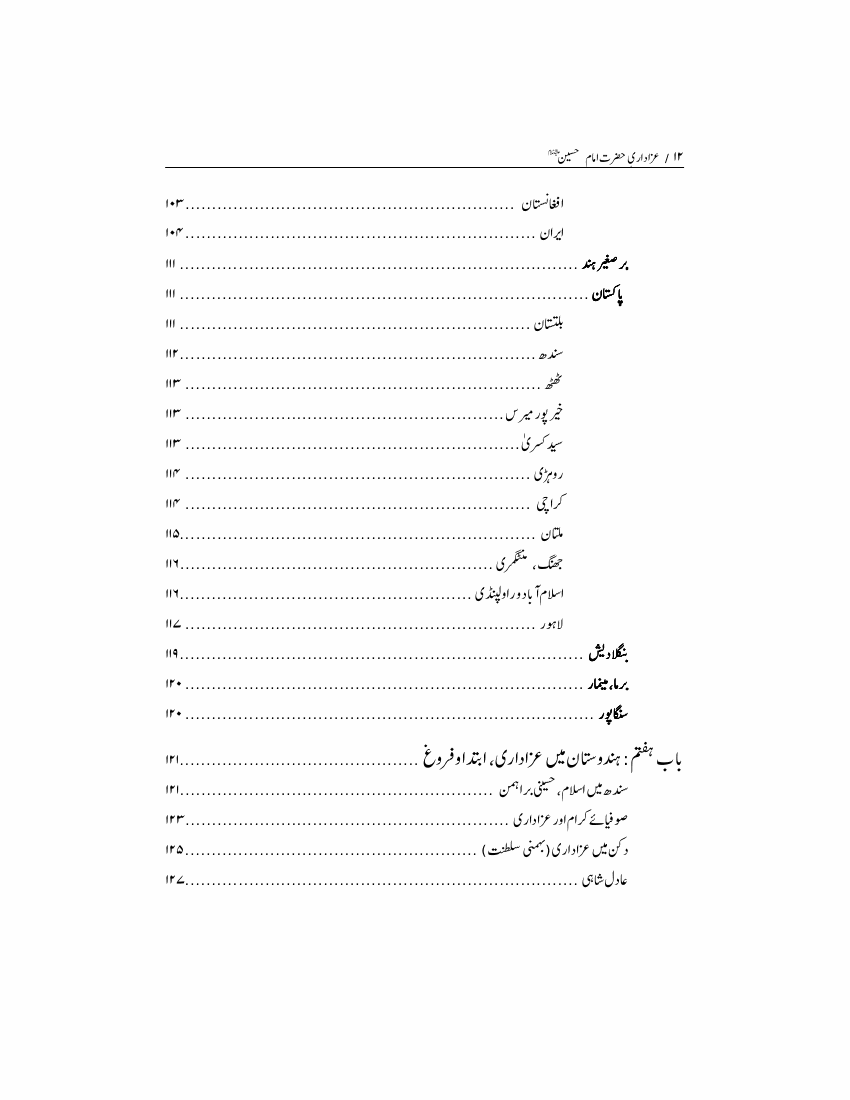 ۱۲ / عزاداری حضرت امام حسینؑ
افغانستان ۱۰۳
ایران ۱۰۴
برصغیر ہند ۱۱۱
پاکستان ۱۱۱
بلتستان ۱۱۱
سندھ ۱۱۲
ٹھٹھ ۱۱۳
خیر پور میرس ۱۱۳
سید کسریٰ ۱۱۳
روہڑی ۱۱۴
کراچی ۱۱۴
ملتان ۱۱۵
جھنگ، منٹگمری ۱۱۶
اسلام آباد و راولپنڈی ۱۱۶
لاہور ۱۱۷
بنگلادیش ۱۱۹
برما، میمار ۱۲۰
سنگاپور ۱۲۰
باب ہفتم : ہندوستان میں عزاداری، ابتدا و فروغ ۱۲۱
سندھ میں اسلام، حسینی براہمن ۱۲۱
صوفیائے کرام اور عزاداری ۱۲۳
دکن میں عزاداری (بہمنی سلطنت) ۱۲۵
عادل شاہی ۱۲۷